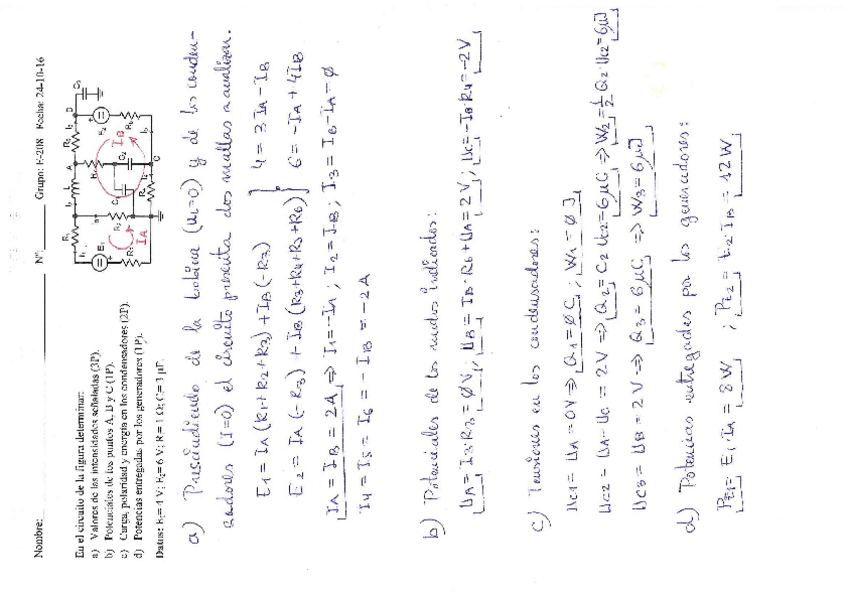 Nombre: Nº: Grupo: E-208 Fecha: 24-10-16
En el circuito de la figura determinar:
a) Valores de las intensidades señaladas (3P).
b) Potenciales de los puntos A, B y C (1P).
c) Carga, polaridad y energía en los condensadores (2P).
d) Potencias entregadas por los generadores (1P).
Datos: E₁= 4 V; E₂= 6 V; R= 1 Ω; C= 3 µF.
a) Prescindiendo de la bobina (uL=0) y de los conden-
sadores (I=0) el circuito presenta dos mallas a analizar.
E1 = IA (R1+R2+R3) + IB (-R3) } 4 = 3 IA - IB
E2 = IA (-R3) + IB (R3+R4+R5+R6) } 6 = -IA + 4IB
IA = IB = 2A ⇒ I1 = -IA ; I2 = IB ; I3 = IB - IA = ø
I4 = I5 = I6 = - IB = -2A
b) Potenciales de los nudos indicados:
UA = I3·R3 = ø V ; UB = IB·R6 + UA = 2V ; UC = -IB·R4 = -2V
c) Tensiones en los condensadores:
UC1 = UA = 0V ⇒ Q1 = ø C ; W1 = ø J
UC2 = UA - UC = 2V ⇒ Q2 = C2 UC2 = 6 µC ⇒ W2 = ½ Q2·UC2 = 6 µJ
UC3 = UB = 2V ⇒ Q3 = 6 µC ⇒ W3 = 6 µJ
d) Potencias entregadas por los generadores:
PE1 = E1·IA = 8W ; PE2 = E2·IB = 12W